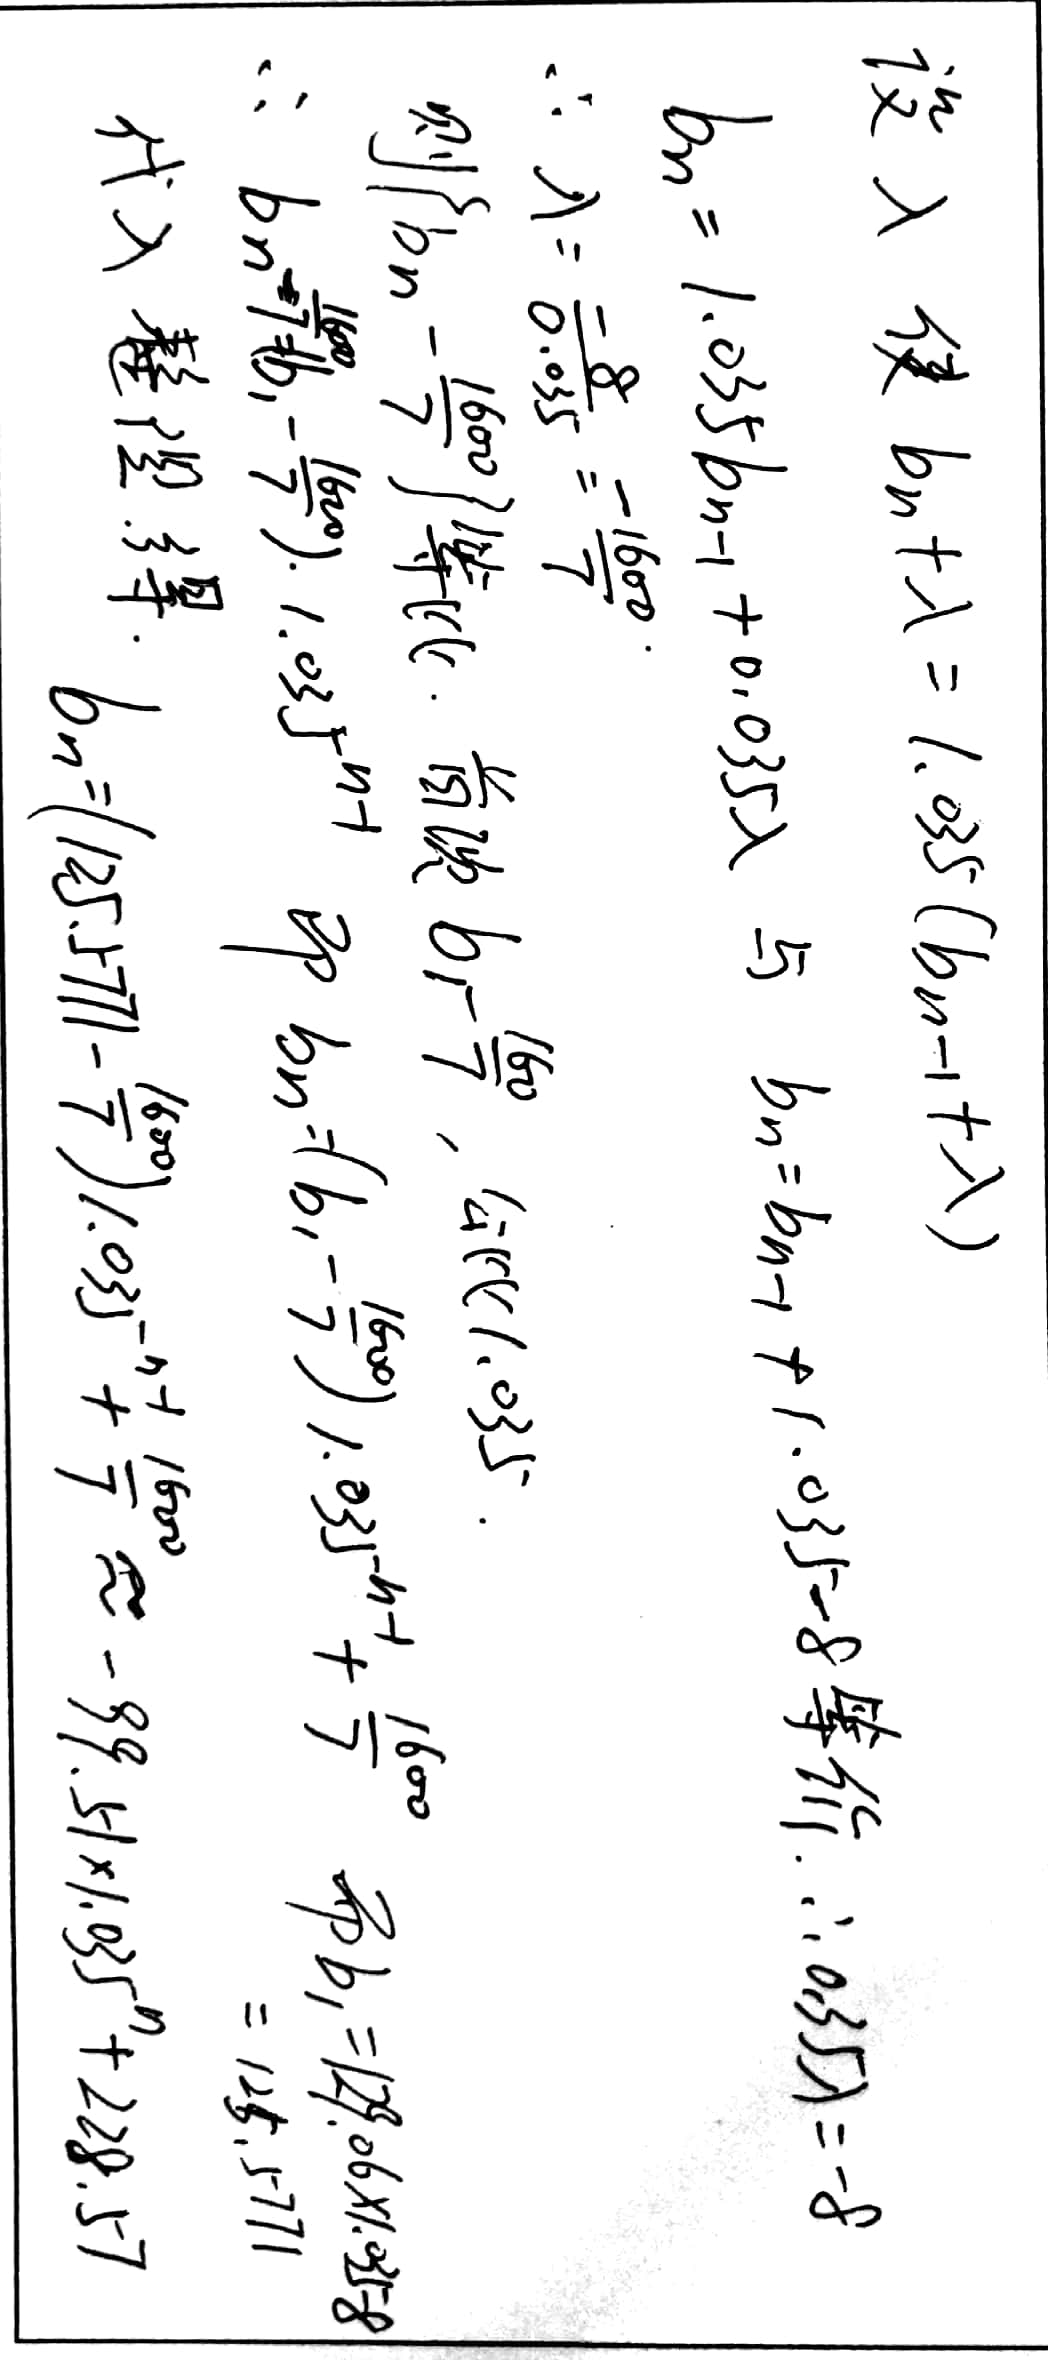 设 λ 使 bn+λ=1.035(bn-1+λ)
bn=1.035bn-1+0.035λ 与 bn=bn-1+1.035-8 等价. ∴0.35λ=-8
∴ λ=-8/0.035=-1600/7.
则{bn-1600/7}等比. 首项 b1-1600/7, 公比1.035.
∴ bn-1600/7=(b1-1600/7)·1.035^n-1 即 bn=(b1-1600/7)1.035^n-1+1600/7 即b1=129.06×1.035-8
=125.5771
代入 得.
bn=(125.5771-1600/7)1.035^n-1+1600/7≈-99.51×1.035^n+228.57